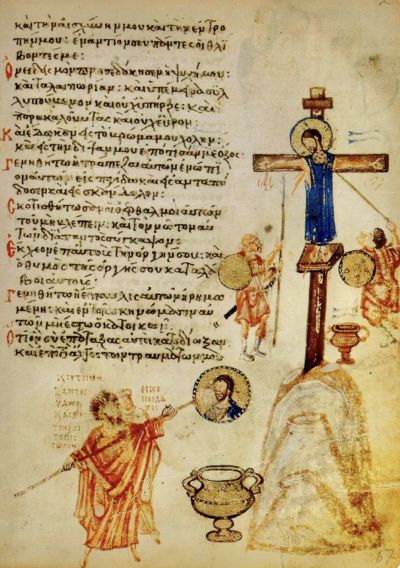 καὶ τὴν αἰσχύνην μου καὶ τὴν ἐντρο
πήν μου· ἐναντίον σου πάντες οἱ θλί
βοντές με·
Ὀνειδισμὸν προσεδόκησεν ἡ ψυχή μου·
καὶ ταλαιπωρίαν· καὶ ὑπέμεινα συλ
λυπούμενον καὶ οὐχ ὑπῆρξε· καὶ πα
ρακαλοῦντας καὶ οὐχ εὗρον·
Καὶ ἔδωκαν εἰς τὸ βρῶμά μου χολὴν·
καὶ εἰς τὴν δίψαν μου ἐπότισάν με ὄξος·
Γενηθήτω ἡ τράπεζα αὐτῶν ἐνώπι
ον αὐτῶν εἰς παγίδα καὶ εἰς ἀνταπό
δοσιν καὶ εἰς σκάνδαλον·
Σκοτισθήτωσαν οἱ ὀφθαλμοὶ αὐτῶν
τοῦ μὴ βλέπειν· καὶ τὸν νῶτον αὐ
τῶν διὰ παντὸς σύγκαμψον·
Ἔκχεον ἐπ αὐτοὺς τὴν ὀργήν σου· καὶ
ὁ θυμὸς τῆς ὀργῆς σου καταλά
βοι αὐτούς·
Γενηθήτω ἡ ἔπαυλις αὐτῶν ἠρημω
μένη· καὶ ἐν τοῖς σκηνώμασιν αὐ
τῶν μὴ ἔστω ὁ κατοικῶν·
Ὅτι ὃν σὺ ἐπάταξας αὐτοὶ κατεδίωξαν·
καὶ ἐπὶ τὸ ἄλγος τῶν τραυμάτων μου
67